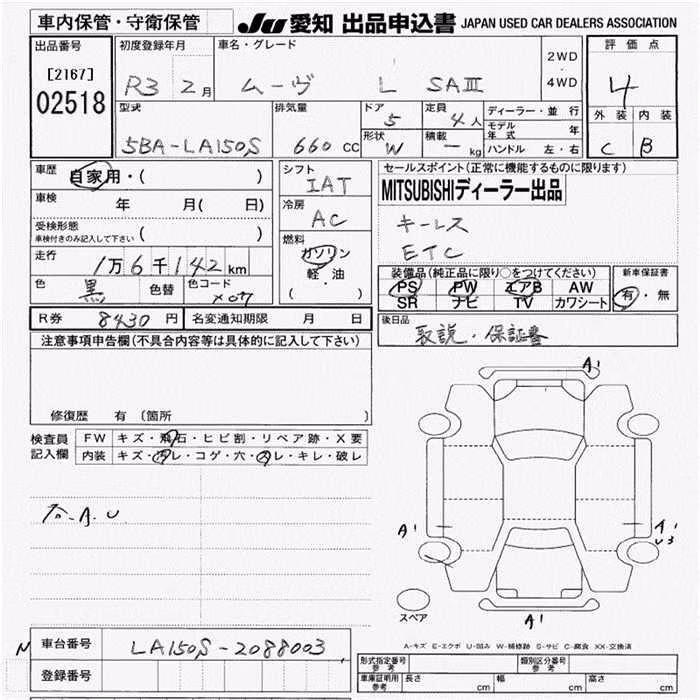 車内保管・守衛保管 JU 愛知 出品申込書 JAPAN USED CAR DEALERS ASSOCIATION
出品番号 初度登録年月 車名・グレード 2WD ・ 4WD 評価点
[2167] R3 2月 ムーヴ L SAⅢ 4
02518 型式 排気量 ドア 5 定員 4人 ディーラー・並行 外装 内装
5BA-LA150S 660cc 形状 W 積載 ーkg モデル年式 年 C B
ハンドル 左・右
車歴 自家用・( ) シフト IAT セールスポイント(正常に機能するものに限ります)
車検 年 月( 日) 冷房 AC MITSUBISHIディーラー出品
受検形態 ( ) キーレス
車検付きのみ記入して下さい 燃料 ETC
走行 1万6千142km ガソリン 装備品(純正品に限り○をつけてください) 新車保証書
色 黒 色替 色コード X07 軽・油 PS PW エアB AW 有・無
( ) SR ナビ TV カワシート
R券 8430円 名変通知期限 月 日 後日品
取説・保証書
注意事項申告欄(不具合内容等は具体的に記入して下さい)
A1
修復歴 有 (箇所 )
検査員 FW キズ・飛石・ヒビ割・リペア跡・X要
記入欄 内装 キズ・汚レ・コゲ・穴・スレ・キレ・破レ
A1 A1
U3
スペア A1
車台番号 LA150S-2088003 A-キズ E-エクボ U-凹み W-補修跡 S-サビ C-腐食 XX-交換済
形式指定番号 参考 類別区分番号 参考
登録番号 車庫証明用 参考 長さ cm 幅 cm 高さ cm